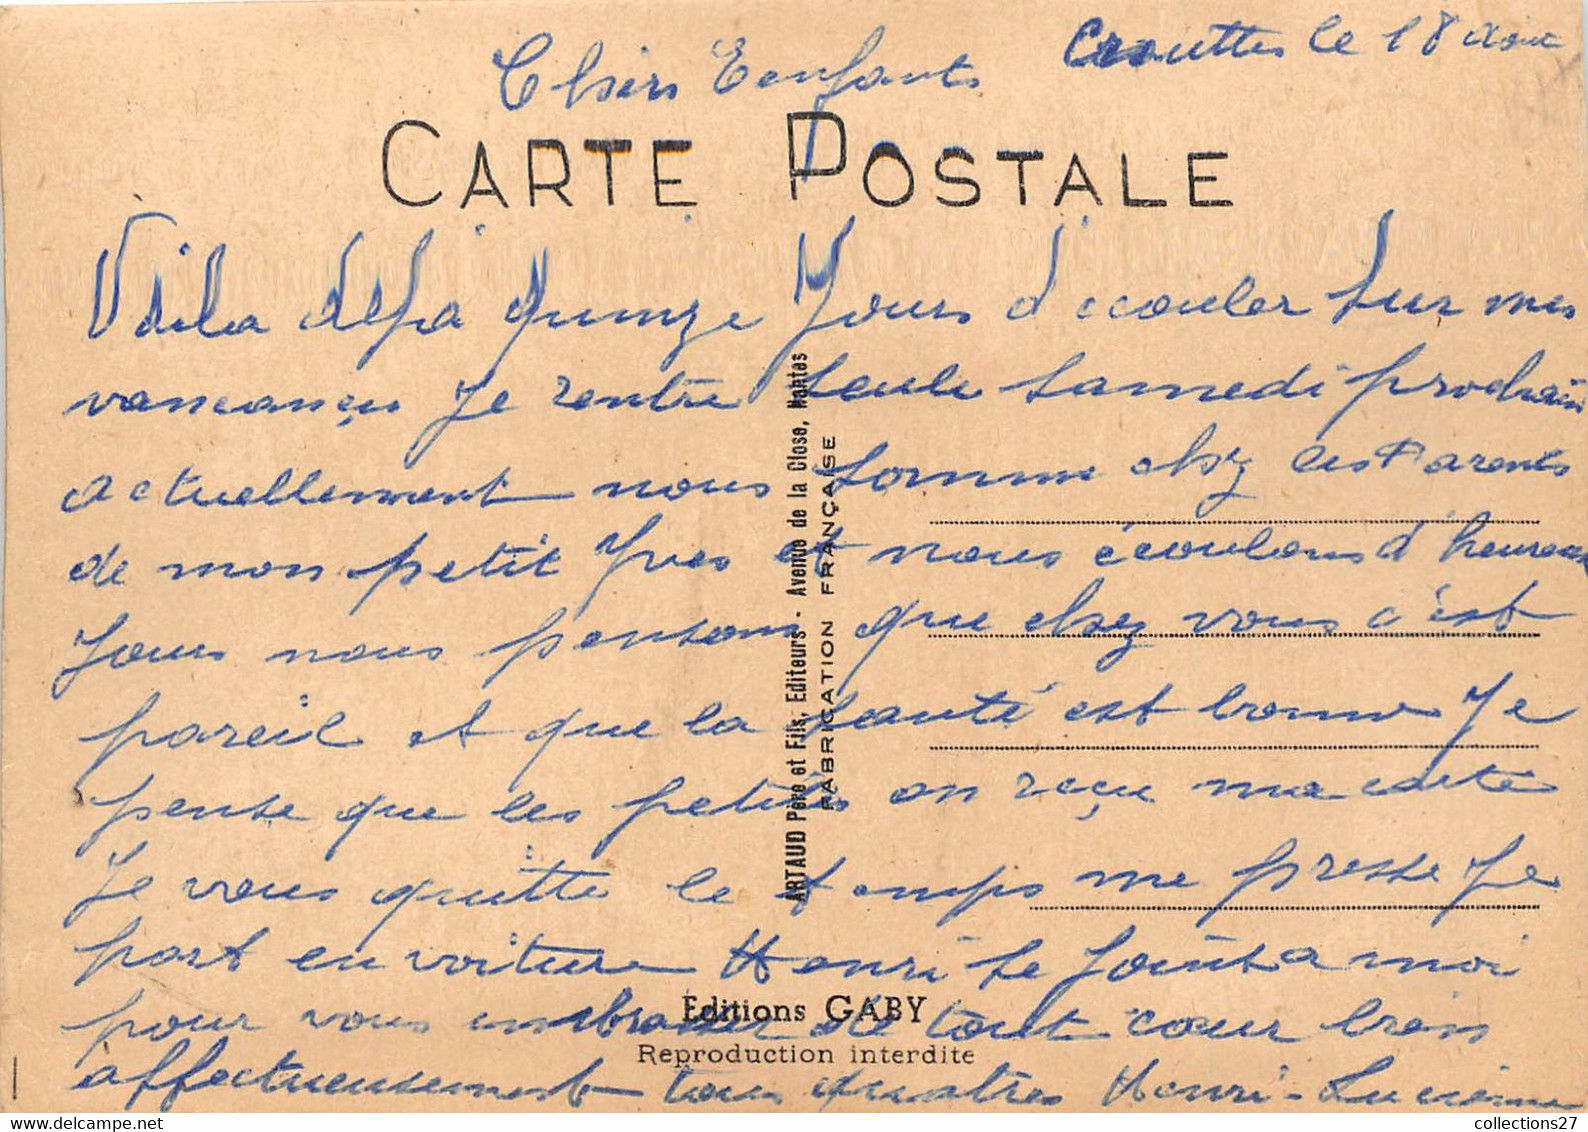 Crouttes le 18 Aout
Chers Enfants
CARTE POSTALE
Voila deja quinze Jours d'ecouler sur mes
vancançes Je rentre seule samedi prochain
actuellement nous somme chez les Parents
de mon petit Yves et nous écoulons d'heureux
Jours nous pensons que chez vous c'est
pareil et que la santé est bonne Je
pense que les petites on reçu ma carte
Je vous quitte le temps me presse Je
part en voiture Henri se joint a moi
pour vous embrasser de tout cœur bien
affectueusement tous quatres Henri - Lucienne
ARTAUD Père et Fils, Editeurs - Avenue de la Close, Nantes
FABRICATION FRANÇAISE
Editions GABY
Reproduction interdite
collections27